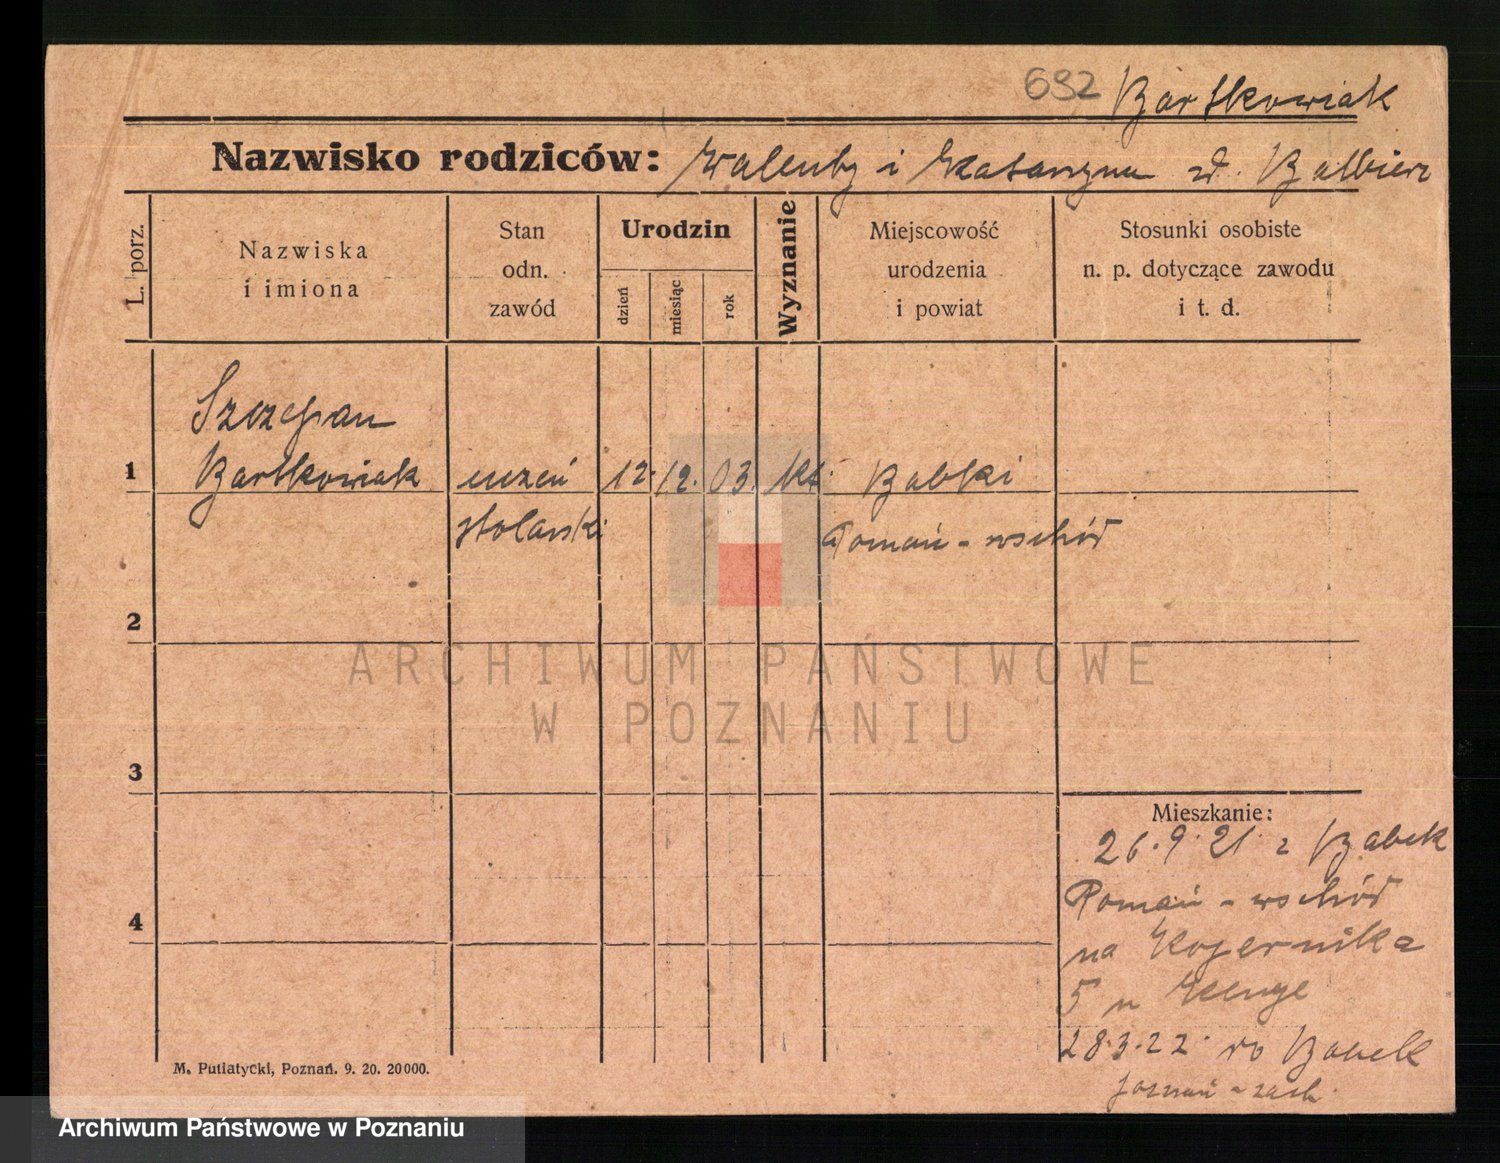 692 Bartkowiak
Nazwisko rodziców: Walenty i Katarzyna z d. Balbierz
L. porz.
Nazwiska
i imiona
Stan
odn.
zawód
Urodzin
dzień
miesiąc
rok
Wyznanie
Miejscowość
urodzenia
i powiat
Stosunki osobiste
n. p. dotyczące zawodu
i t. d.
Szczepan
1 Bartkowiak uczeń 12. 12. 03. kt. Babki
stolarski Poznań - wschód
2
ARCHIWUM PAŃSTWOWE
W POZNANIU
3
Mieszkanie:
26.9.21 z Babek
Poznań - wschód
4
na Kopernika
5 u
28.3.22. do Babek
Poznań - zach.
M. Putiatycki, Poznań. 9. 20. 20000.
Archiwum Państwowe w Poznaniu